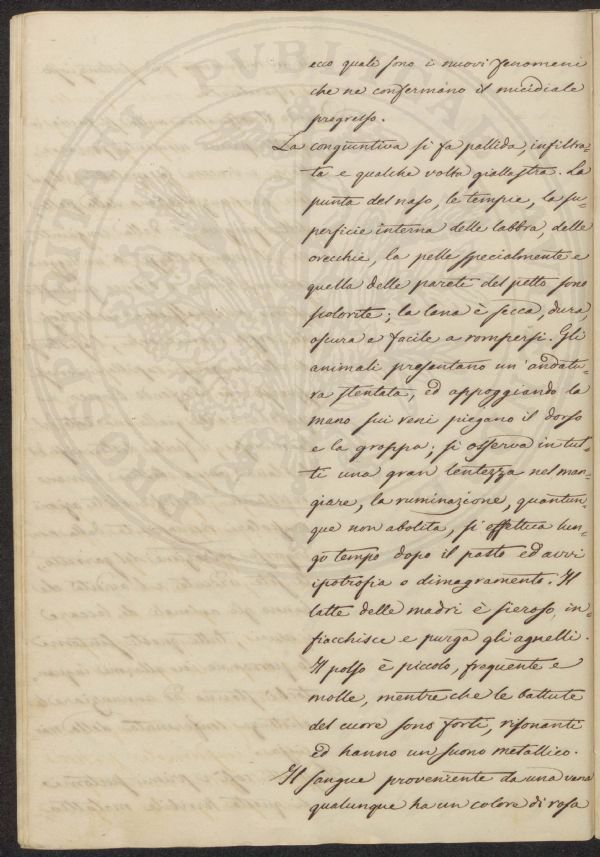 ecco quali sono i nuovi fenomeni
che ne confermano il micidiale
progresso.
La congiuntiva si fa pallida, infiltra=
ta e qualche volta giallastra. La
punta del naso, le tempie, la su=
perficie interna delle labbra, delle
orecchie, la pelle specialmente e
quella delle pareti del petto sono
scolorite; la lana è secca, dura,
oscura e facile a rompersi. Gli
animali presentano un'andatu=
ra stentata, ed appoggiando la
mano sui reni piegano il dorso
e la groppa; si osserva in tut=
ti una gran lentezza nel man=
giare, la ruminazione, quantun=
que non abolita, si effettua lun=
go tempo dopo il pasto ed avvi
ipotrofia o dimagramento. Il
latte delle madri è sieroso, in=
fiacchisce e purga gli agnelli.
Il polso è piccolo, frequente e
molle, mentre che le battute
del cuore sono forti, risonanti
ed hanno un suono metallico.
Il sangue proveniente da una vena
qualunque ha un colore di rosa